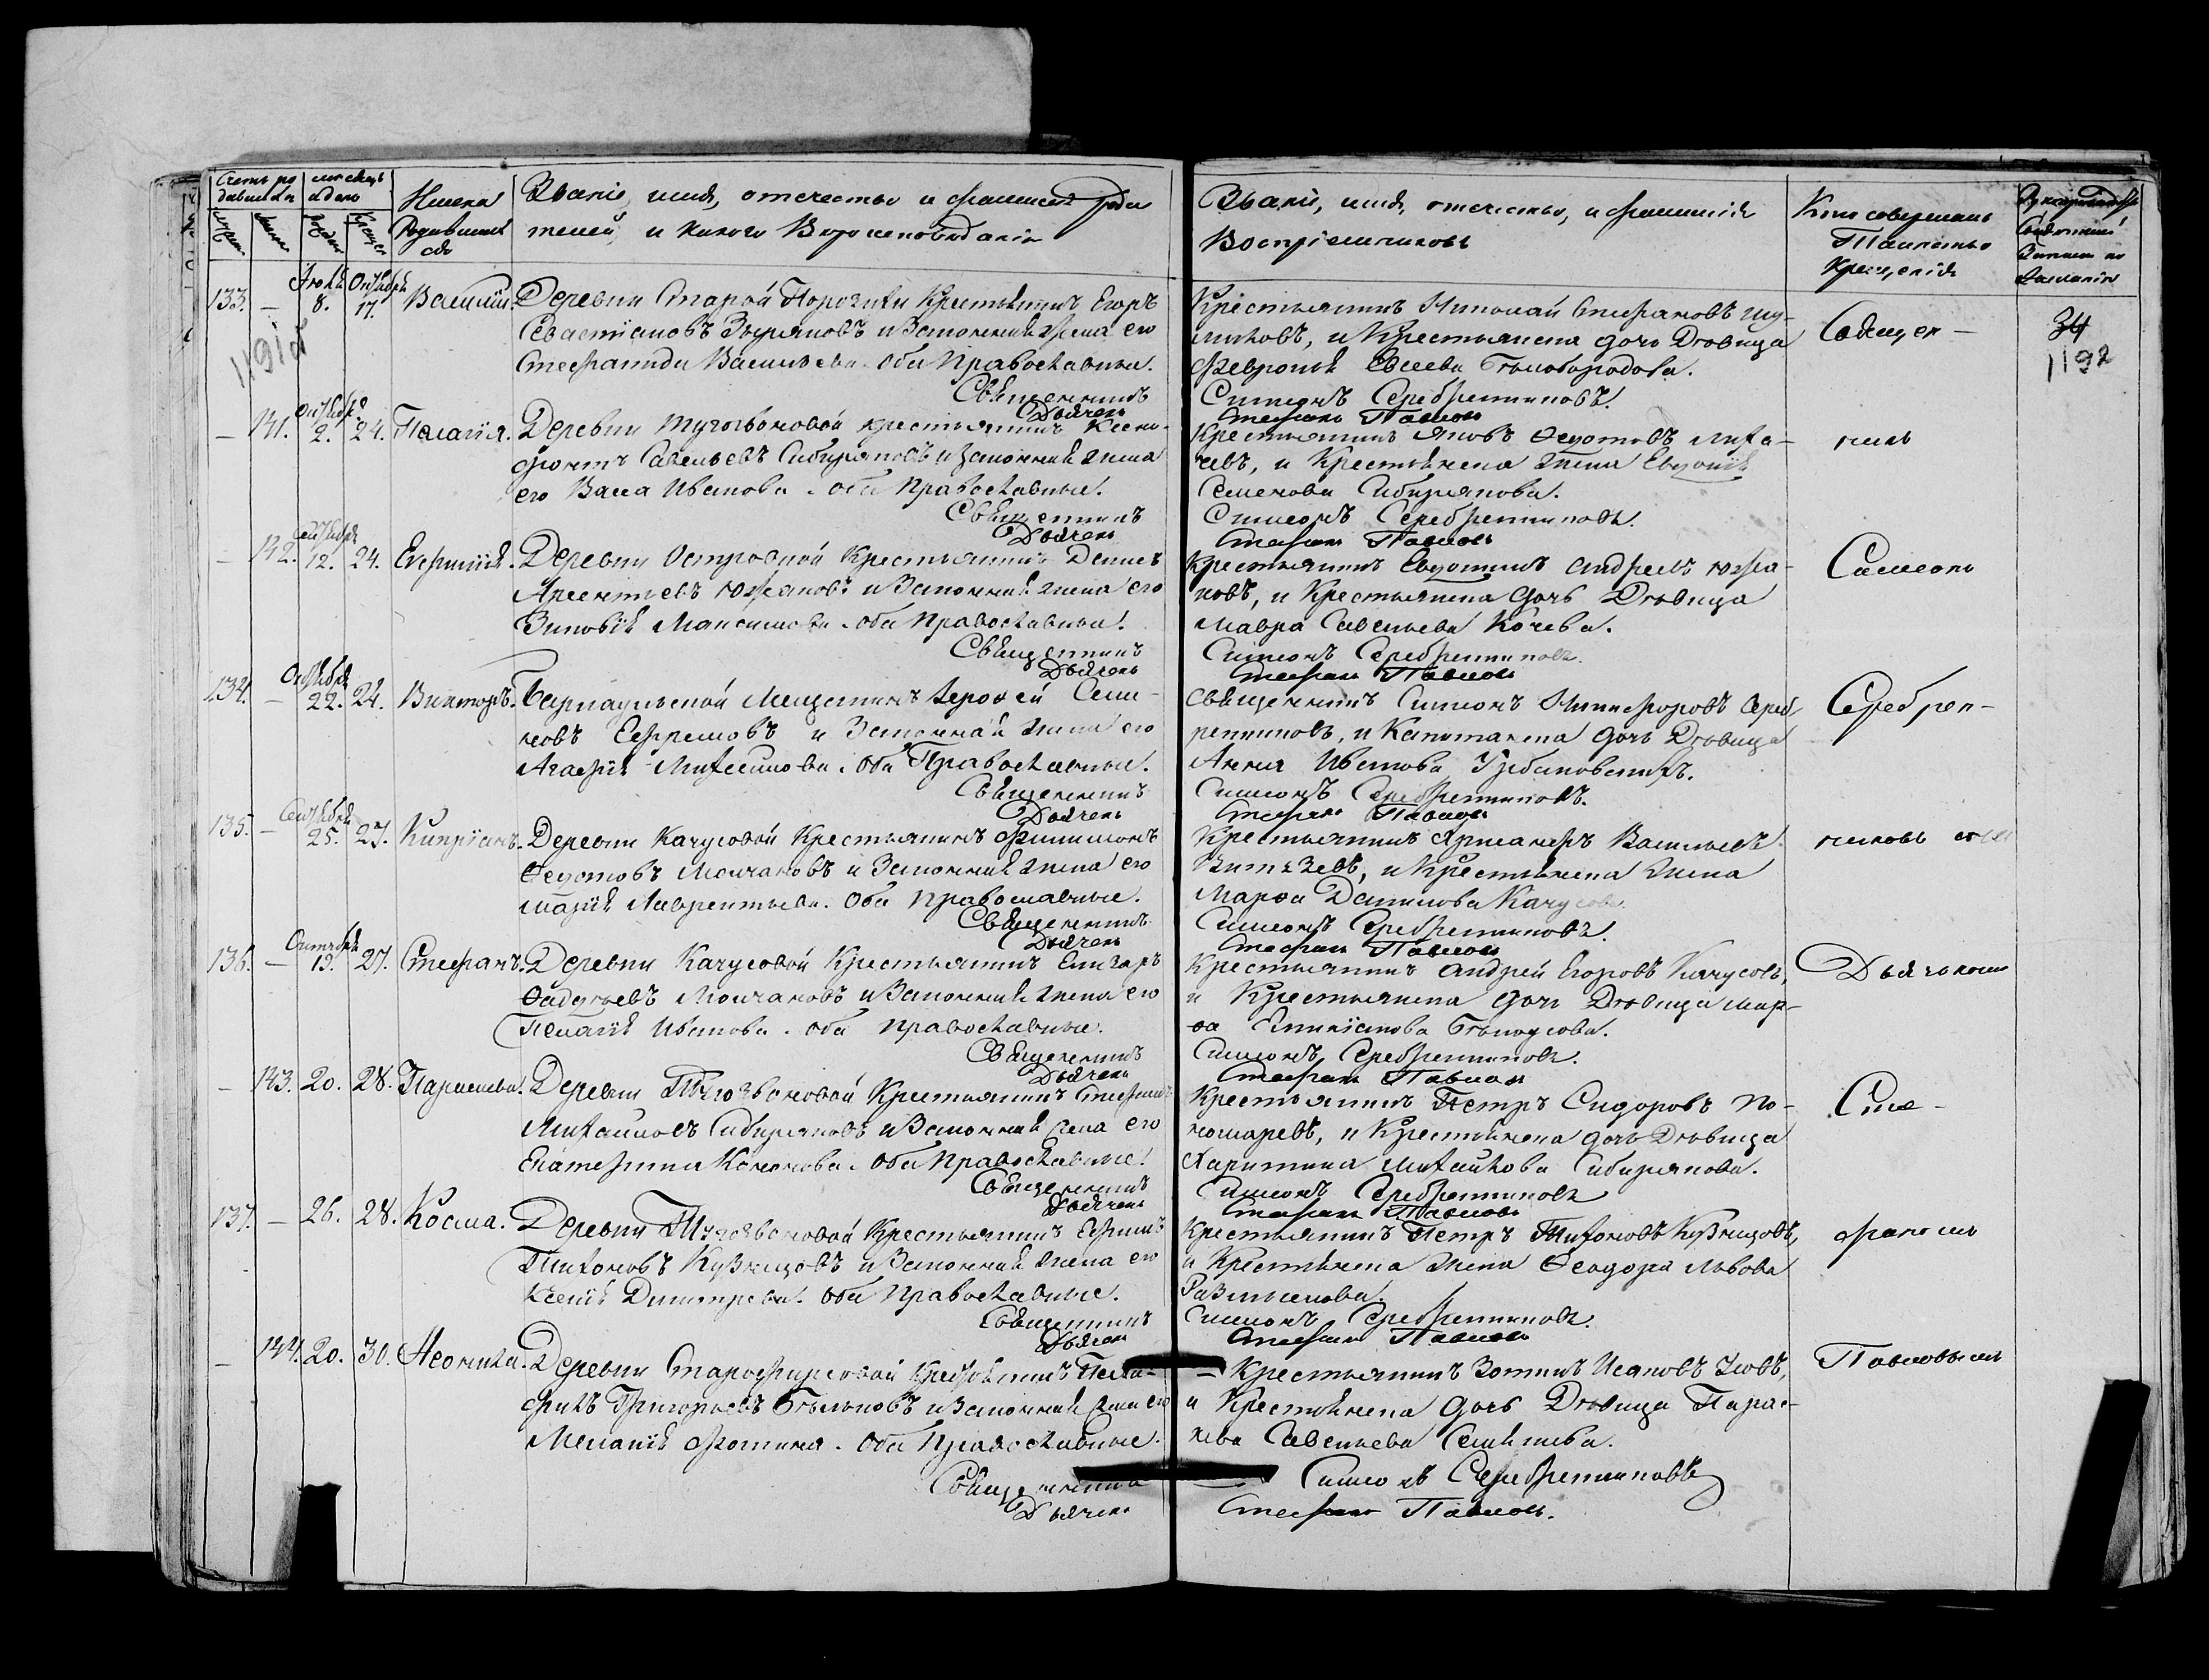 Счетъ родившихся
мѣсяцъ и день
Имена Родившихся
Званіе, имя, отчество и фамилія Родителей, и какого Вѣроисповѣданія
Званіе, имя, отчество, и фамилія Воспріемниковъ
Кто совершалъ Таинство Крещенія
133. — 8. Октября 17. Василій. Деревни Старой Крестьянинъ Егоръ
Севастіановъ Зыряновъ и Законная Жена его
Стефанида Васильева. Оба Православные.
Священникъ
Дьячекъ
Крестьянинъ Николай Стефановъ
и Крестьянска дочь Дѣвица
Февронія Евсеева Бѣлобородова.
Симеонъ Серебренниковъ.
Стефанъ Павловъ
Священ-
34
1191об
1192
— 141. Октября 2. 24. Пелагія. Деревни Тугозвоновой крестьянинъ Ксено-
фонтъ Савельевъ Сибиряковъ и Законная жена
его Васса Иванова. Оба Православные.
Священникъ
Дьячекъ
Крестьянинъ Яковъ Ѳедотовъ Лиха-
чевъ, и Крестьянска жена Евдокія
Семенова Сибирякова.
Симеонъ Серебренниковъ.
Стефанъ Павловъ
никъ
— 142. Сентября 12. 24. Евфимія. Деревни Островной Крестьянинъ Денисъ
Арсентьевъ Южаковъ и Законная жена его
Зиновія Максимова. Оба Православные.
Священникъ
Дьячекъ
Крестьянинъ Евдокимъ Андреевъ Южа-
ковъ, и Крестьянска дочь Дѣвица
Мавра Савельева Кочева.
Симеонъ Серебренниковъ.
Стефанъ Павловъ
Симеонъ
134. — Октября 22. 24. Викторъ. Барнаульской Мещанинъ Ерофей Семе-
новъ Ефремовъ и Законная жена его
Агафія Михайлова. Оба Православные.
Священникъ
Дьячекъ
Священникъ Симеонъ Никифоровъ Сереб-
ренниковъ, и Капитанска дочь Дѣвица
Анна Иванова Урбановскихъ.
Симеонъ Серебренниковъ.
Стефанъ Павловъ
Серебрен-
135. — Сентября 25. 27. Кипріанъ. Деревни Качусовой Крестьянинъ Филимонъ
Ѳедотовъ Молчановъ и Законная жена его
Марія Лаврентьева. Оба Православные.
Священникъ
Дьячекъ
Крестьянинъ Васильевъ
Витязевъ, и Крестьянска жена
Марѳа Данилова Качусова
Симеонъ Серебренниковъ.
Стефанъ Павловъ
никовъ съ
136. — Октября 19. 27. Стефанъ. Деревни Качусовой Крестьянинъ Елизаръ
Ѳадѣевъ Молчановъ и Законная жена его
Пелагія Иванова. Оба Православные.
Священникъ
Дьячекъ
Крестьянинъ Андрей Егоровъ Качусовъ,
и Крестьянска дочь Дѣвица Мар-
ѳа Бѣлоусова.
Симеонъ Серебренниковъ.
Стефанъ Павловъ
Дьячкомъ
— 143. 20. 28. Параскева. Деревни Тугозвоновой Крестьянинъ Стефанъ
Михайловъ Сибиряковъ и Законная жена его
Екатерина Кононова. Оба Православные.
Священникъ
Дьячекъ
Крестьянинъ Петръ Сидоровъ По-
номаревъ, и Крестьянска дочь Дѣвица
Харитина Михайлова Сибирякова.
Симеонъ Серебренниковъ
Стефанъ Павловъ
Сте-
137. — 26. 28. Косма. Деревни Тугозвоновой Крестьянинъ Ефимъ
Тихоновъ Кузнецовъ и Законная жена его
Ксенія Димитрева. Оба Православные.
Священникъ
Дьячекъ
Крестьянинъ Петръ Тихоновъ Кузнецовъ,
и Крестьянска жена Ѳеодора Львова
Симеонъ Серебренниковъ.
Стефанъ Павловъ
фаномъ
— 144. 20. 30. Неонила. Деревни Старофирсовой Крестьянинъ
Григорьевъ и Законная жена его
Меланія Фотина. Оба Православные.
Священникъ
Дьячекъ
— Крестьянинъ Зотикъ Исаковъ
и Крестьянска дочь Дѣвица Парас-
кева Савельева
Симеонъ Серебренниковъ
Стефанъ Павловъ.
Павловымъ